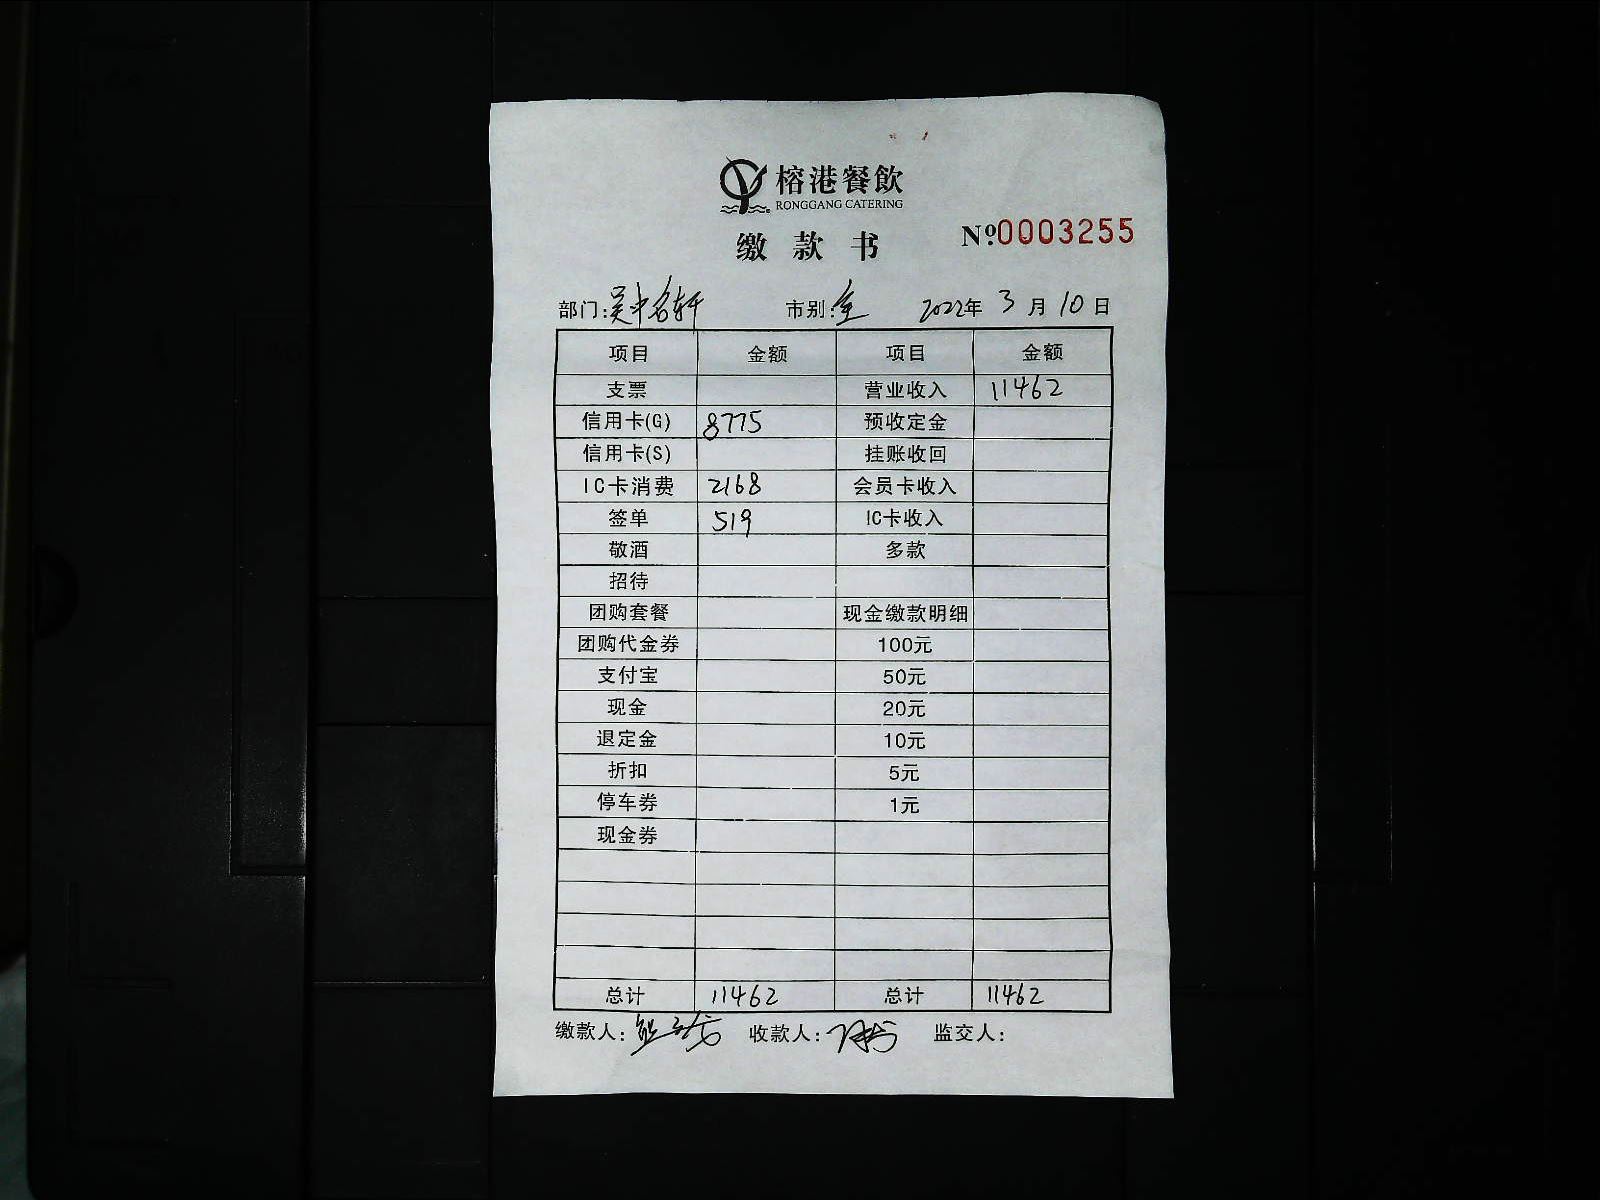 榕港餐飲
RONGGANG CATERING
缴款书
№0003255
部门:吴中名轩 市别:全 2022年3月10日
项目 金额 项目 金额
支票 营业收入 11462
信用卡(G) 8775 预收定金
信用卡(S) 挂账收回
IC卡消费 2168 会员卡收入
签单 519 IC卡收入
敬酒 多款
招待
团购套餐 现金缴款明细
团购代金券 100元
支付宝 50元
现金 20元
退定金 10元
折扣 5元
停车券 1元
现金券
总计 11462 总计 11462
缴款人: 收款人: 监交人: